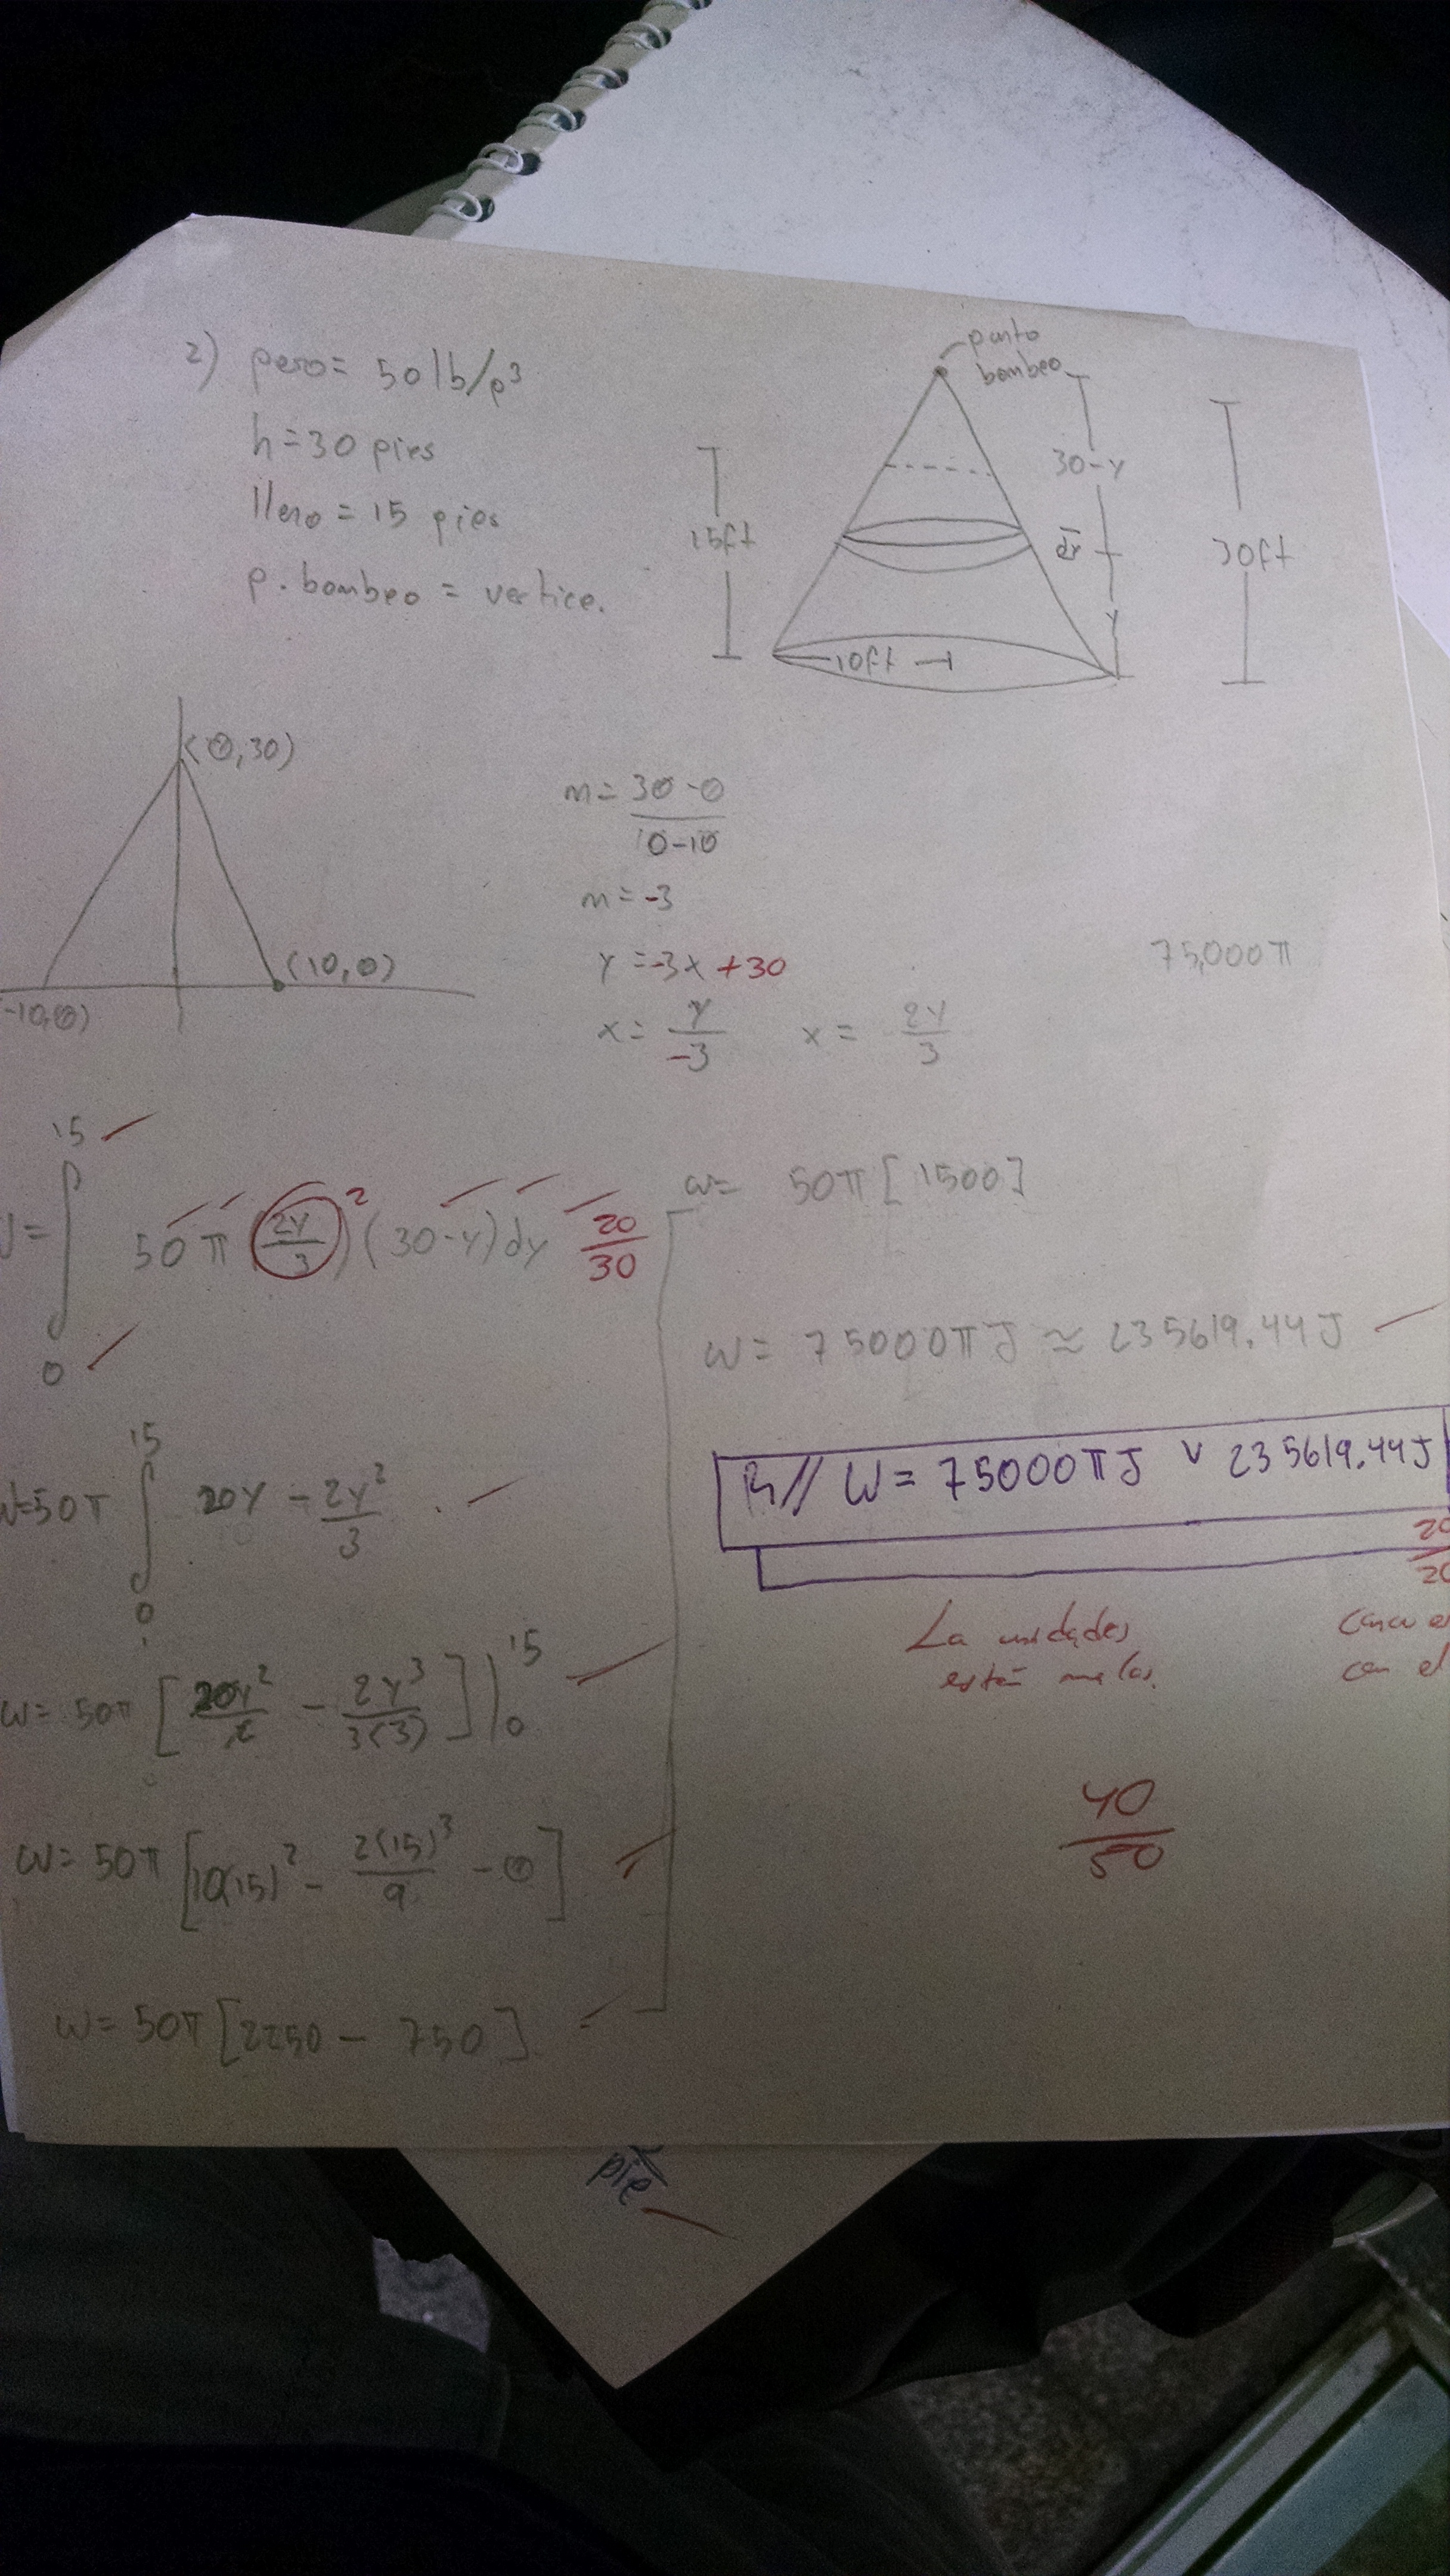 2) peso = 50 lb/p³
h = 30 pies
lleno = 15 pies
p. bombeo = vertice.
punto
bombeo
30-y
15ft
dy
30ft
y
10ft
(0,30)
(10,0)
(-10,0)
m = 30-0 / 0-10
m = -3
y = -3x +30
x = y/-3 x = 2y/3
75,000π
15
50π (2y/3)² (30-y) dy 20/30
0
15
W=50π ∫ 20y - 2y²/3
0
W= 50π [20y²/2 - 2y³/3(3)] |¹⁵₀
W= 50π [10(15)² - 2(15)³/9 - 0]
W= 50π [2250 - 750]
W= 50π [1500]
W= 75000π J ≈ 235619.44 J
R// W = 75000π J v 235619.44 J
20/20
La unidades
están malas.
con el
40/50
pie